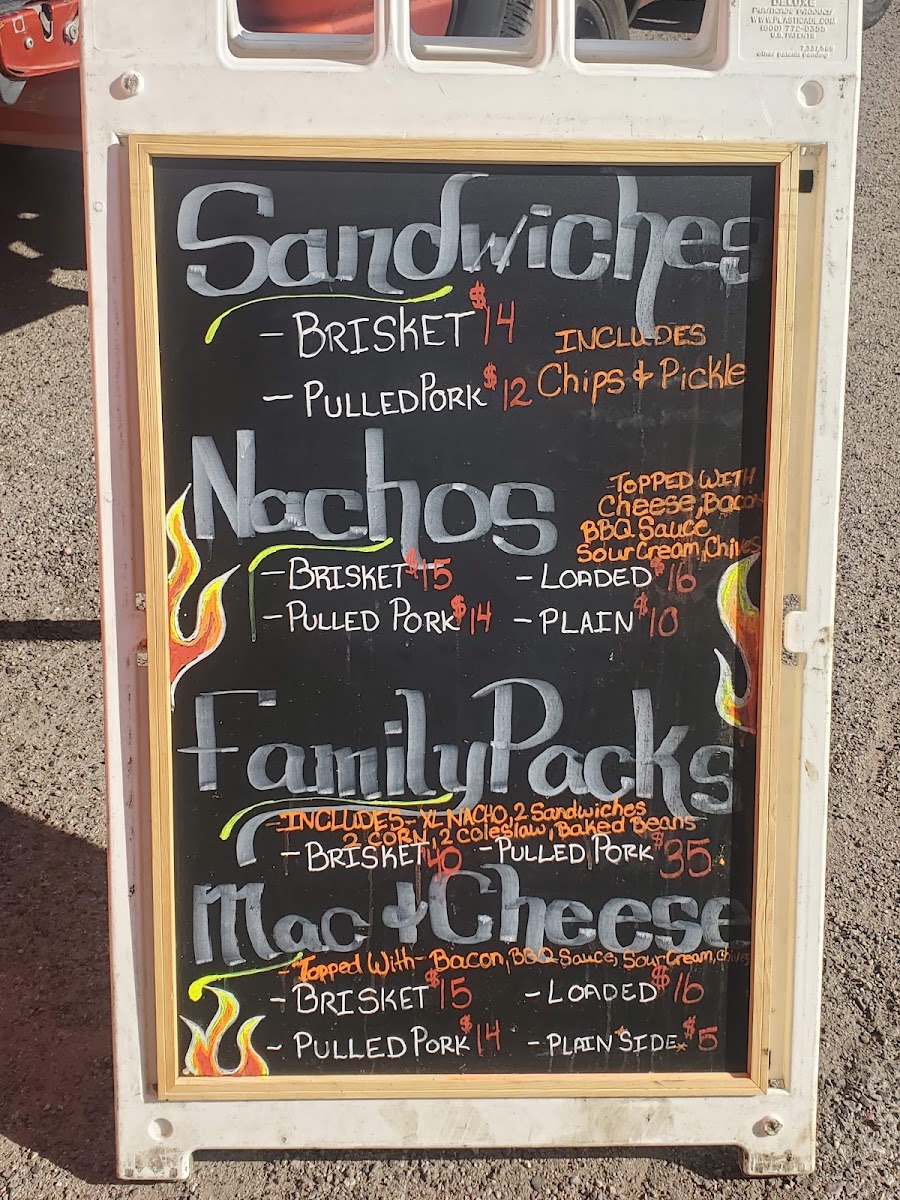 DELUXE
PLASTICADE PRODUCT
WWW.PLASTICADE.COM
(800) 772-0355
U.S. PATENTS
7,337,568
other patents pending
Sandwiches
- BRISKET $14
INCLUDES
- PULLED PORK $12 Chips & Pickle
Nachos
TOPPED WITH
Cheese, Bacon
BBQ Sauce
Sour Cream, Chives
- BRISKET $15 - LOADED $16
- PULLED PORK $14 - PLAIN $10
Family Packs
- INCLUDES - XL NACHO, 2 Sandwiches
2 CORN, 2 Coleslaw, Baked Beans
- BRISKET $40 - PULLED PORK $35
Mac & Cheese
- Topped With - Bacon, BBQ Sauce, Sour Cream, Chives
- BRISKET $15 - LOADED $16
- PULLED PORK $14 - PLAIN *SIDE* $5